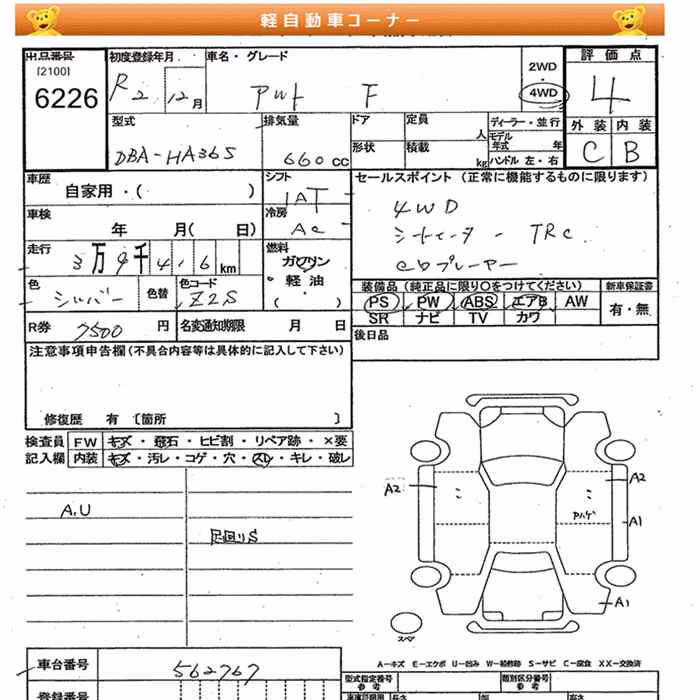 軽自動車コーナー
出品番号 初度登録年月 車名・グレード 2WD 評価点
[2100]
6226 R2 12月 F ・ 4WD 4
型式 排気量 ドア 定員 人 ディーラー・並行 外装 内装
モデル年式 年
DBA-HA36S 660cc 形状 積載 kg ハンドル 左・右 C B
車歴 シフト セールスポイント (正常に機能するものに限ります)
自家用・( ) IAT 4WD
車検 冷房 シートヒーター TRC
年 月( 日) AC CDプレーヤー
走行 燃料
3万9千416km ガソリン・軽油・( )
色 色替 色コード 装備品 (純正品に限り○をつけてください) 新車保証書
シルバー Z2S PS PW ABS エアB AW 有・無
SR ナビ TV カワ
R券 7500円 名変通知期限 月 日 後日品
注意事項申告欄(不具合内容等は具体的に記入して下さい)
修復歴 有 〔箇所 〕
検査員 FW キズ・飛石・ヒビ割・リペア跡・×要
記入欄 内装 キズ・汚レ・コゲ・穴・スレ・キレ・破レ
A2 A2
A.U A1
足回りS
A1
スペア
A-キズ E-エクボ U-凹み W-補修跡 S-サビ C-腐食 XX-交換済
車台番号 562767 型式指定番号 参考 類別区分番号 参考
登録番号